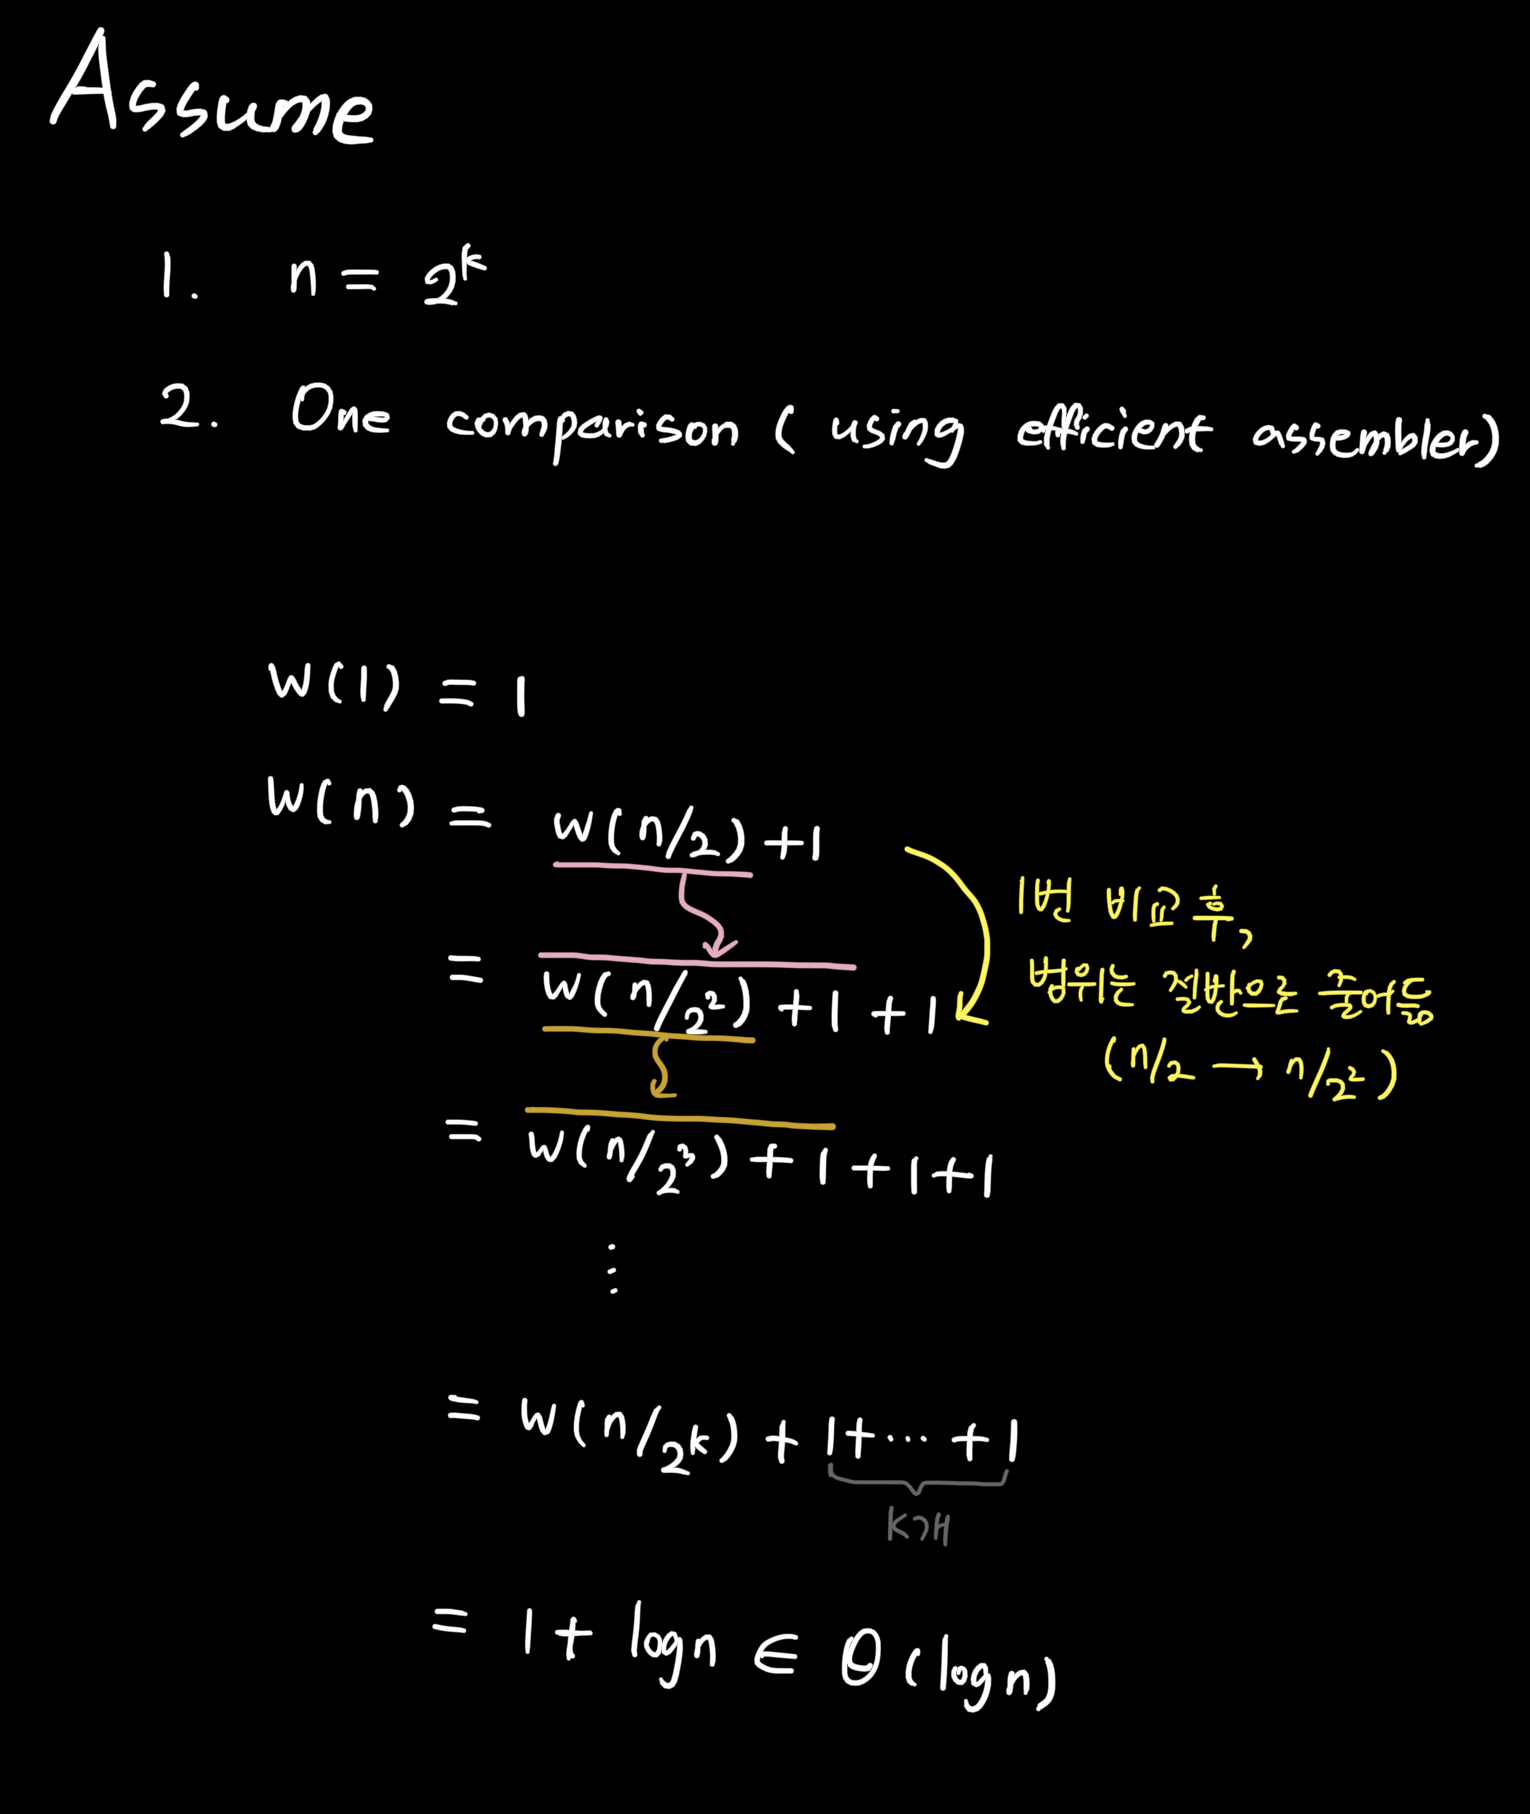 Assume
1. n = 2^k
2. One comparison ( using efficient assembler)
W(1) = 1
W(n) = W(n/2) +1
= W(n/2²) + 1 + 1
1번 비교 후,
범위는 절반으로 줄어듦
(n/2 → n/2²)
= W(n/2³) + 1 + 1 + 1
⋮
= W(n/2^k) + 1+ ⋯ + 1
k개
= 1 + logn ∈ Θ(logn)